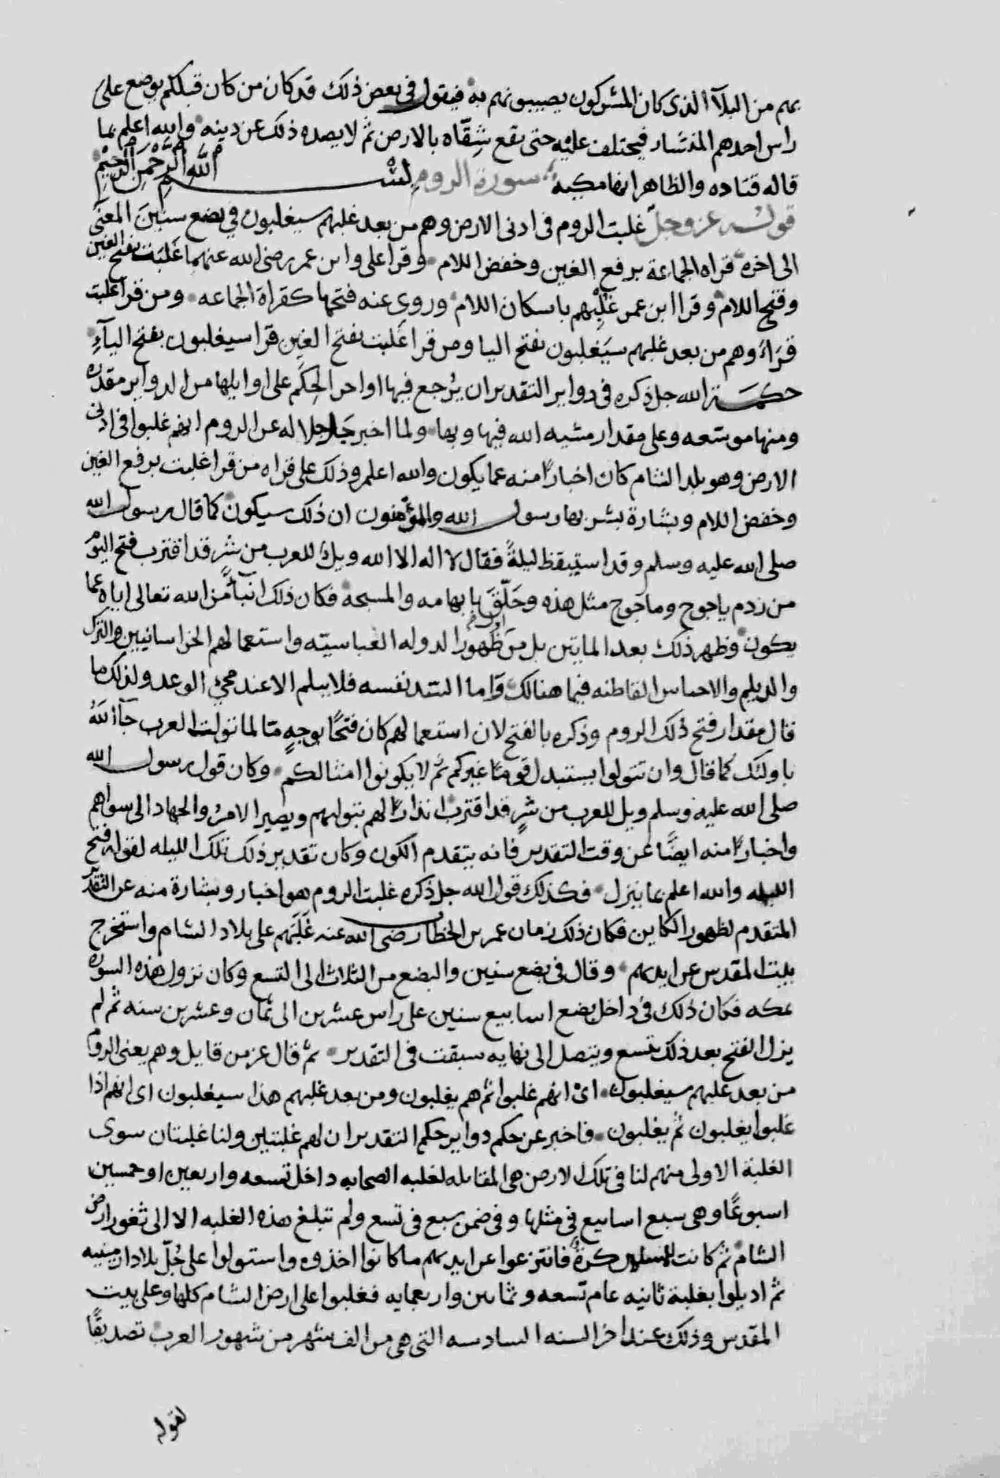 بهم من البلآ الذى كان المشركون يصيبونهم به فيقول فى بعض ذلك قد كان من كان قبلكم يوضع على
راس احدهم المنشار فيختلف عليه حتى يقع شِقّاه بالارض ثم لا يصده ذلك عن دينه والله اعلم بما
قاله قتاده والظاهر انها مكيه سورة الروم بسم الله الرحمن الرحيم
قوله عز وجل غلبت الروم فى ادنى الارض وهم من بعد غلبهم سيغلبون فى بضع سنين المعنَى
الى اخره قراه الجماعة برفع الغين وخفض اللام وقرا على وابن عمر رضى الله عنهما غَلَبَت بفتح الغين
وفتح اللام وقرا ابن عمر غَلْبِهم باسكان اللام وروى عنه فتحها كقراة الجماعه ومن قرا غلبت
قرَاءَ وهم من بعد غلبهم سيَغلبون بفتح اليا ومن قرا غَلبت بفتح الغين قرا سيغلبون بفتح اليآءِ
حكمة الله جل ذكره فى دواير التقدير ان يُرجع فيها اواخر الحِكَم على اوايلها من الدواير مقدره
ومنها موسعه وعلى مقدار مشيه الله فيها وبها ولما اخبر جل جلاله عن الروم انهم غلبوا فى ادنى
الارض وهو بلد الشام كان اخبارًا منه عما يكون والله اعلم وذلك على قراه من قرا غلبت برفع الغين
وخفض اللام وبشارة بشر بها رسول الله والمؤمنون ان ذلك سيكون كما قال رسول الله
صلى الله عليه وسلم وقد استيقظ ليلةً فقال لا اله الا الله ويل للعرب من شر قد اقترب فتح اليوم
من ردم ياجوج وماجوج مثل هذه وحَلّقَ بابهامه والمسبحة فكان ذلك انبآءً من الله تعالى اياه عما
يكون وظهر ذلك بعد المايتين بل من ظهور الدوله العباسيّه واستعمالهم الخراسانيين والترك
والديلم والاحساس الفاطنه فيما هنالك واما السد نفسه فلا يسلم الا عند مجئ الوعد ولذلك ما
قال مقدار فتح ذلك الروم وذكره بالفتح لان استعمالهم كان فتحًا بوجهٍ مّا لما تولت العرب جآ الله
باولئك كما قال وان تتولوا يستبدل قومًا غيركم ثم لا يكونوا امثالكم وكان قول رسول الله
صلى الله عليه وسلم ويل للعرب من شرٍ قد اقترب انذارًا لهم بتوليهم ويصير الامر والجهاد الى سواهم
واخبارًا منه ايضًا عن وقت التقدير فانه يتقدم الكون وكان تقدير ذلك تلك الليله لقوله فتح
الليله والله اعلم بما ينزل فكذلك قول الله جل ذكره غلبت الروم هو اخبار وبشارة منه عن التقدير
المتقدم لظهور الكاين فكان ذلك زمان عمر بن الخطاب رضى الله عنه غَلَبَهم على بلاد الشام واستخرج
بيت المقدس عن ايديهم وقال فى بضع سنين والبضع من الثلاث الى التسع وكان نزول هذه السورة
بمكه فكان ذلك فى داخل بضع اسابيع سنين على راس عشرين الى ثمان وعشرين سنه ثم لم
يزل الفتح بعد ذلك يتسع ويتصل الى نهاية سبقت فى التقدير ثم قال عز من قايل وهم يعنى الروم
من بعد غلبهم سيغلبون اىْ انهم غلبوا ثم هم يغلبون ومن بعد غلبهم هذا سيغلبون اى انهم اذا
غلبوا يغلبون ثم يغلبون فاخبر عن حكم دواير حكم التقدير ان لهم غلبتين ولنا غلبتان سوى
الغلبة الاولى منهم لنا فى تلك الارض هى المقابله لغلبه الصحابه داخل تسعه واربعين او خمسين
اسبوعًا وهى سبع اسابيع فى مثلها وفى ضمن سبع فى تسع ولم تبلغ هذه الغلبه الا الى ثغور ارض
الشام ثم كانت للمسلمين كرةٌ فانتزعوا عن ايديهم ما كانوا اخذوه واستولوا على جُلّ بلاد ارمينيه
ثم اديلوا بغلبة ثانيه عام تسعه وثمانين واربعمايه فغلبوا على ارض الشام كلها وعلى بيت
المقدس وذلك عند اخر السنه السادسه التى هى من الف شهر من شهور العرب تصديقًا
لقوله